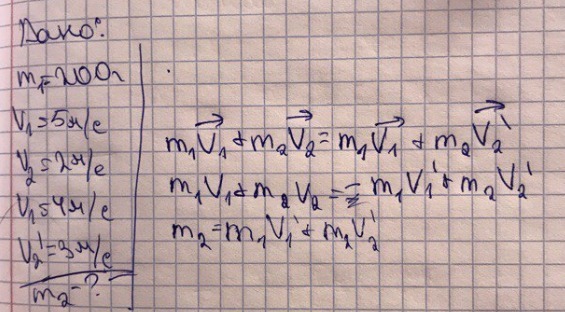 Дано:
m₁=200г
V₁=5м/с
V₂=2м/с
V₁=4м/с
V₂'=3м/с
m₂-?
m₁V₁+m₂V₂=m₁V₁+m₂V₂'
m₁V₁+m₂V₂=-m₁V₁'+m₂V₂'
m₂=m₁V₁'+m₂V₂'